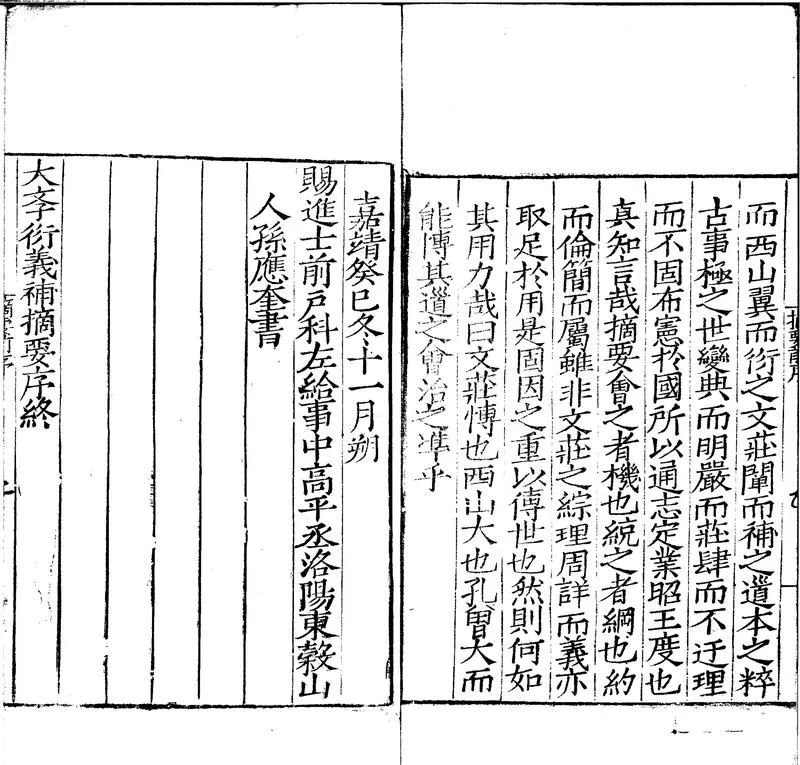 而西山翼而衍之文莊闡而補之道本之粹
古事極之世變典而明嚴而莊肆而不迂理
而不固布憲扵國所以通志定業昭王度也
真知言哉摘要會之者機也統之者綱也約
而倫簡而屬雖非文莊之綜理周詳而義亦
取足扵用是固因之重以傳世也然則何如
其用力哉曰文莊慱也西山大也孔曾大而
能慱其道之會治之凖乎
嘉靖癸巳冬十一月朔
賜進士前戸科左給事中高平丞洛陽東穀山
人孫應奎書
大孝衍義補摘要序終